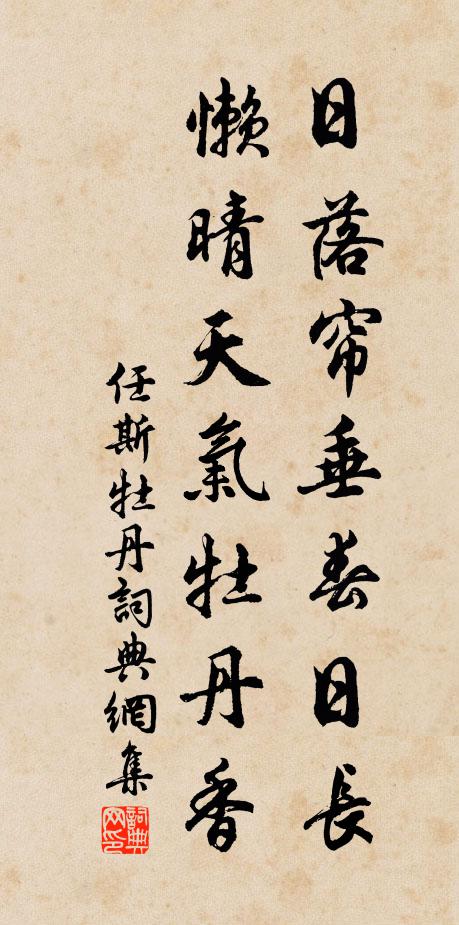 日落帘垂春日長
懶晴天氣牡丹香
任斯牡丹詞典網集
詞典
网印